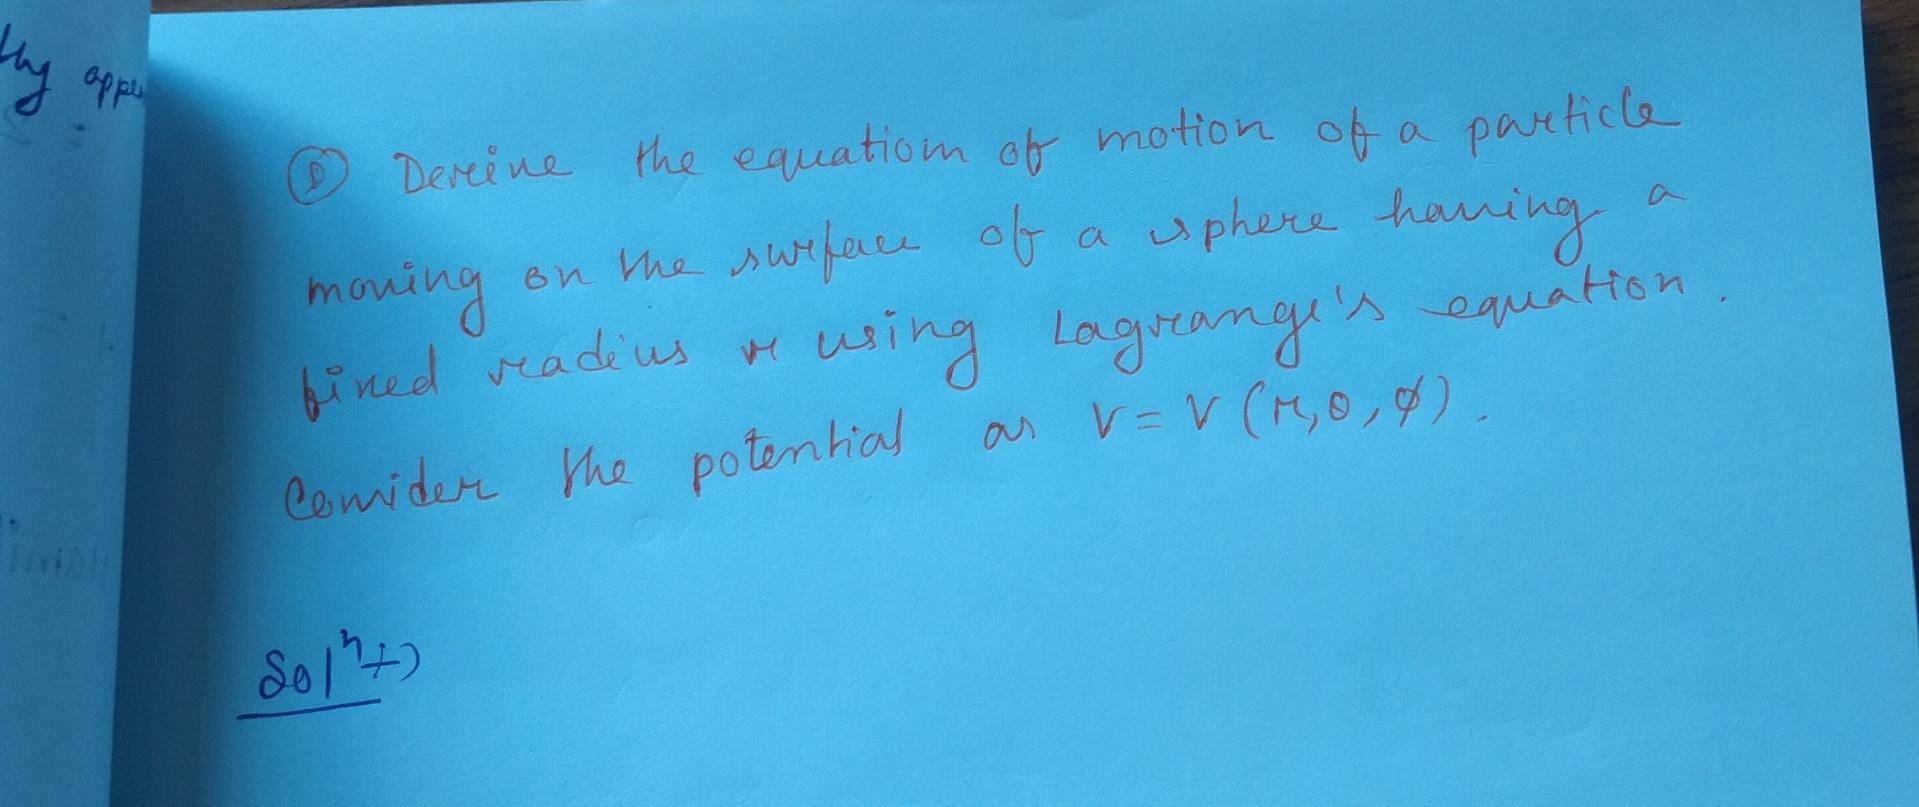 thy appe
① Derive the equation of motion of a particle
moving on the surface of a sphere having a
fixed radius r using Lagrange's equation.
Consider the potential as V = V (r, θ, ϕ).
Solⁿ→